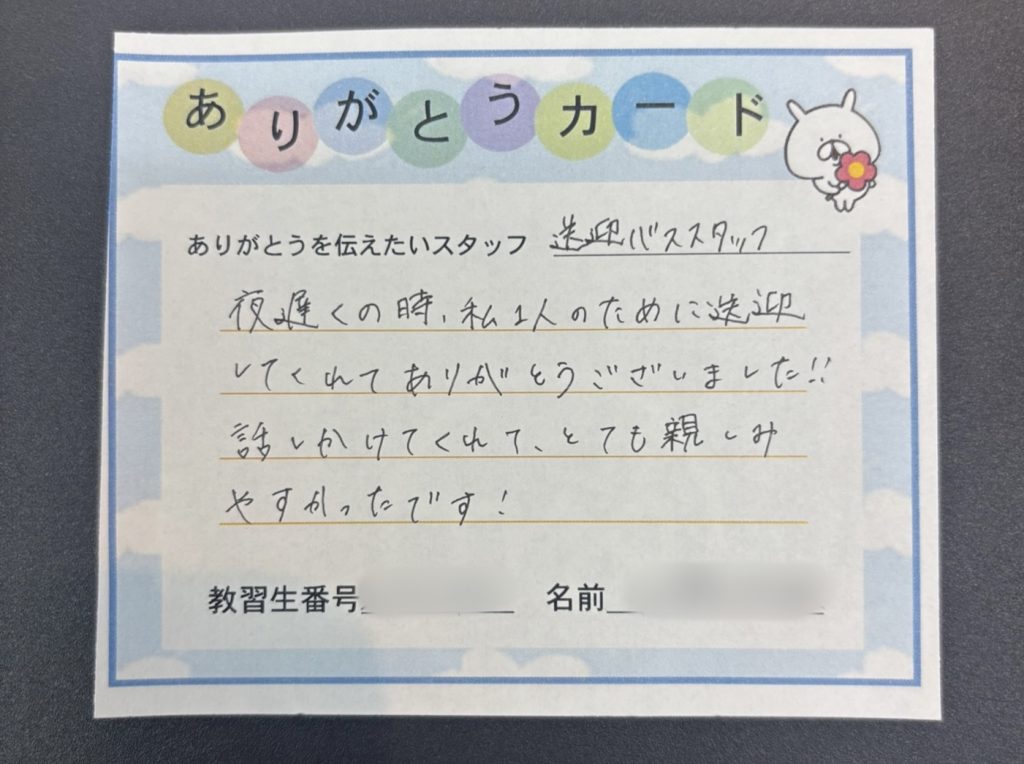 ありがとうカード
ありがとうを伝えたいスタッフ 送迎バススタッフ
夜遅くの時、私1人のために送迎
してくれてありがとうございました!!
話しかけてくれて、とても親しみ
やすかったです!
教習生番号 名前